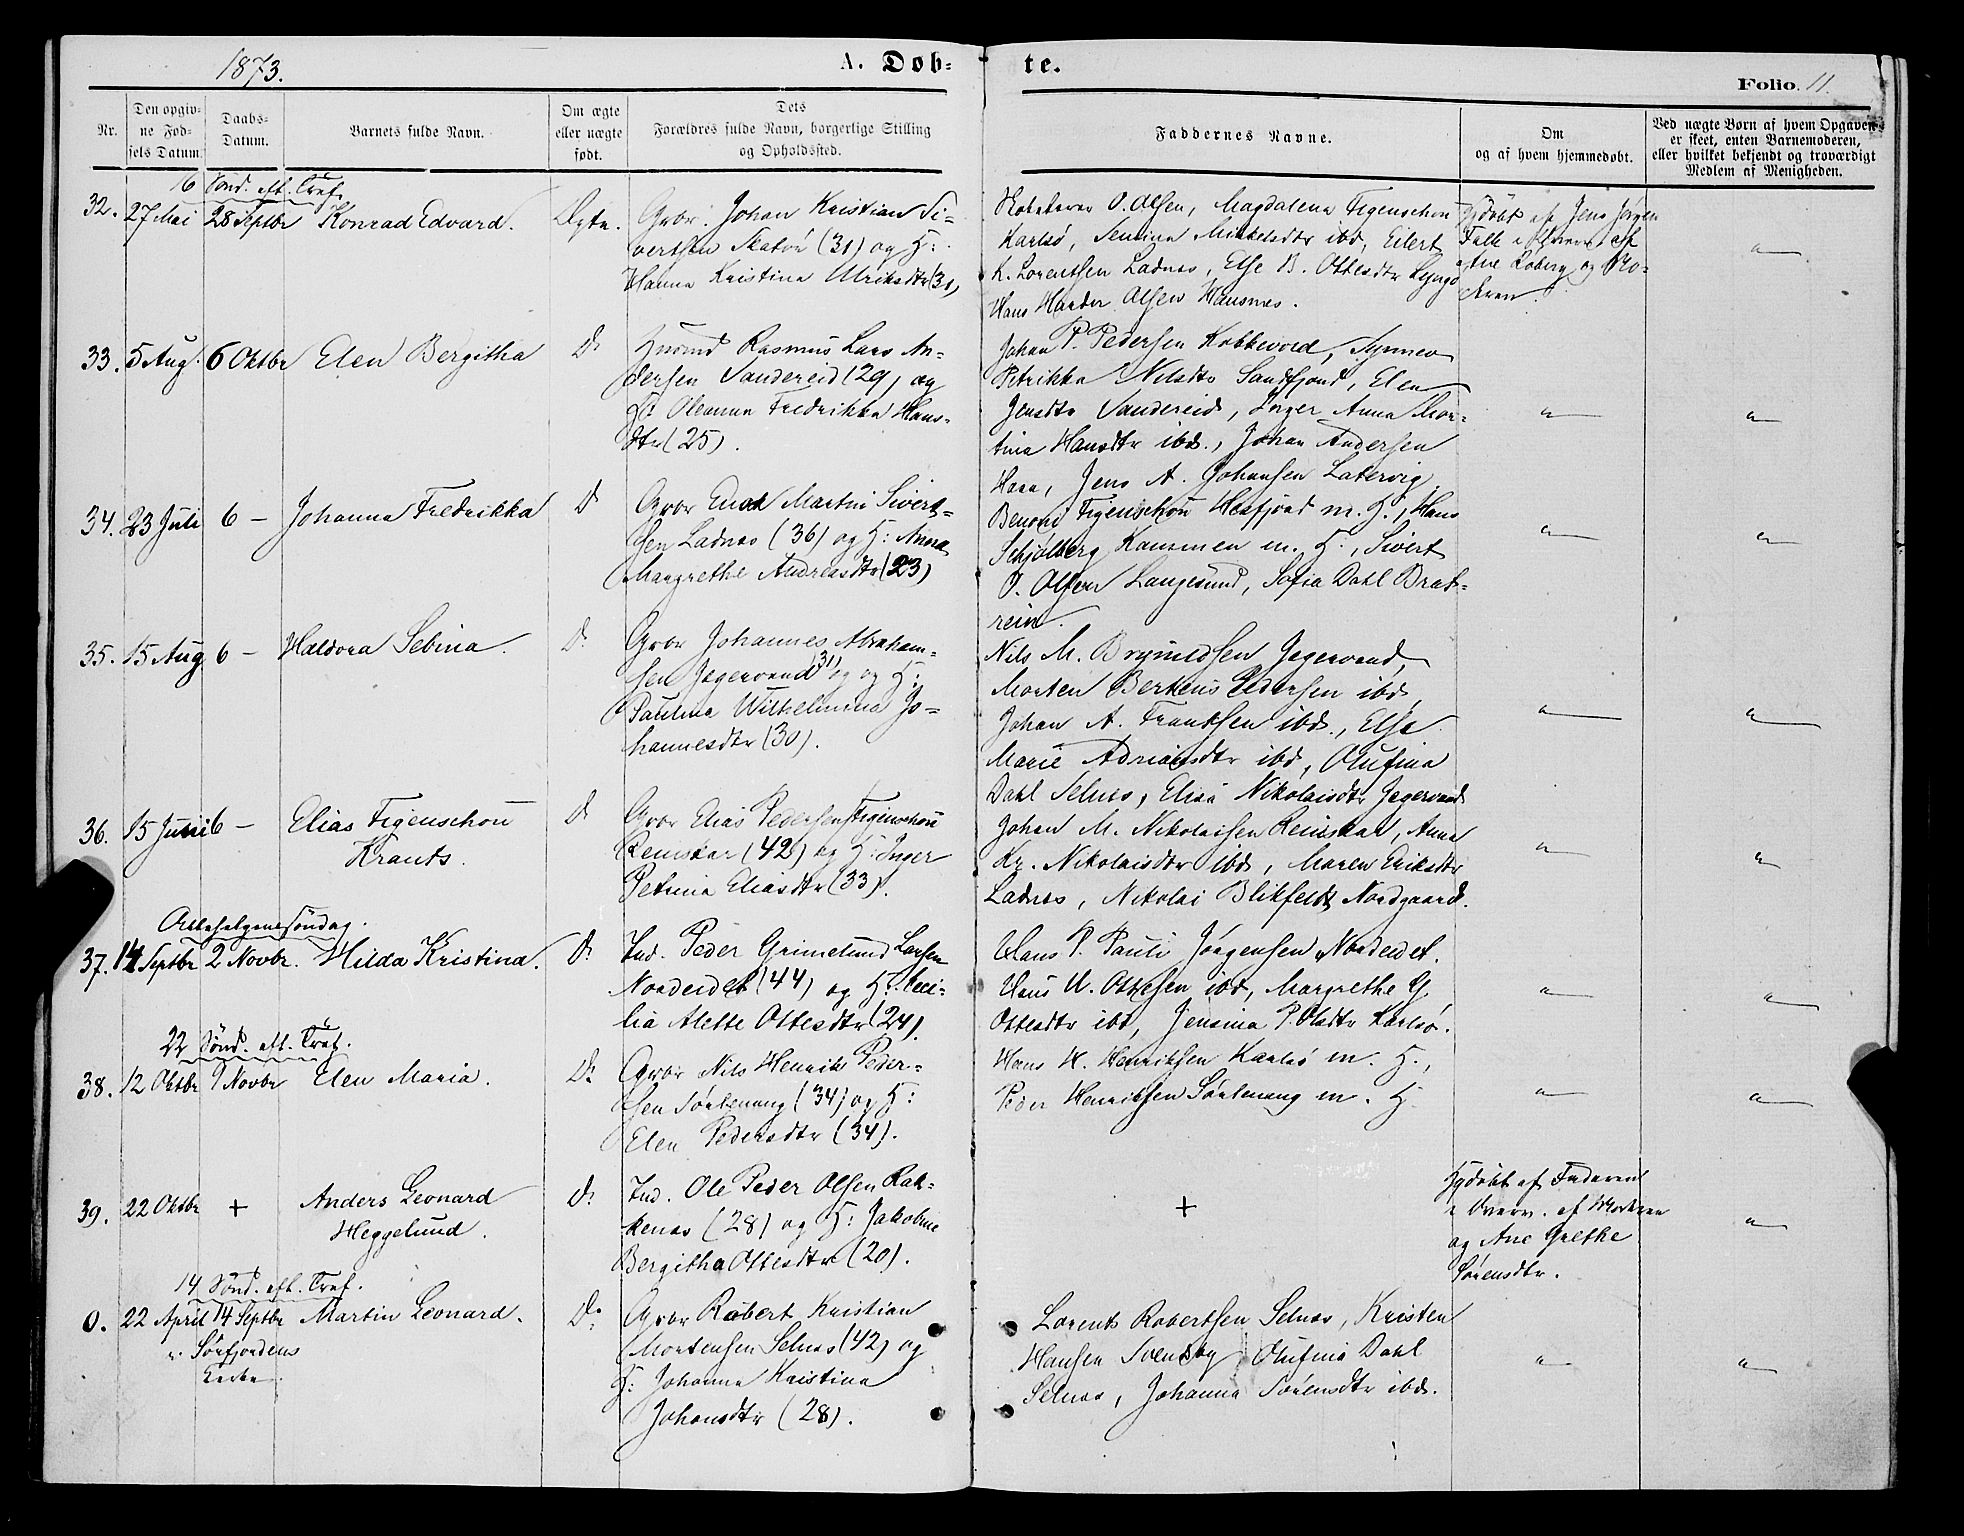 1873.
A. Døb-
te.
Folio. 11.
Nr.
Den opgiv-
ne Fød-
sels Datum.
Daabs-
Datum.
Barnets fulde Navn.
Om ægte
eller uægte
født.
Dets
Forældres fulde Navn, borgerlige Stilling
og Opholdssted.
Faddernes Navne.
Om
og af hvem hjemmedøbt.
Ved uægte Børn af hvem Opgaven
er skeet, enten Barnemoderen,
eller hvilket bekjendt og troværdigt
Medlem af Menigheden.
16 Sønd. eft. Tref.
32. 27 Mai 28 Septbr Konrad Edvard. Ægte.
Gbr. Johan Kristian Si-
vertsen Skatør (31) og H:
Hanna Kristina Ulriksdtr (31)
O. Olsen, Magdalena Figenschou
Karlsø, Mikkelsdtr ibd, Eilert
K. Lorentsen Ladnes, Else B. Ottesdtr
Hans Harder Olsen Hansnes.
Hjdøbt af Jens Jörgen
Falk i af
Ane Roberg og
"
33. 5 Aug. 6 Oktbr Elen Bergitha D:
Husmd Rasmus Lars An-
dersen Sandereid (29) og
H: Oleanna Fredrikka Hans-
dtr (25).
Johan P. Pedersen Kobbevord,
Petrikka Nilsdtr Sandfjord, Elen
Jensdtr Sandereid, Inger Anna Mor-
tina Hansdtr ibd., Johan Andersen
"
"
34. 23 Juli 6 — Johanna Fredrikka D:
Gbr Enok Martin Sivert-
sen Ladnes (36) og H: Anna
Margrethe Andreasdtr (23)
Jens A. Johansen Latervig
Benoni Figenschou Hesfjord m. H., Hans
Schjølberg Kansmen m. H., Sivert
P. Olsen Langesund, Sofia Dahl Brat-
rein.
"
"
35. 15 Aug 6 — Haldora Sebina. D:
Gbr Johannes Abraham-
sen Jegervand (31) og H:
Paulina Wilhelmina Jo-
hannesdtr (30).
Nils M. Brynildsen Jegervand,
Morten Berteus Pedersen ibd,
Johan A. Frantsen ibd., Else
Marie Adriansdtr ibd, Olufina
Dahl Selnes, Elisa Nikolaisdtr Jegervand
"
"
36. 15 Juni 6 — Elias Figenschou
Krants.
D:
Gbr Elias Pedersen Figenschou
Reinskar (42) og H: Inger
Petrina Eliasdtr (33).
Johan M. Nikolaisen Reinskar, Anna
Kr. Nikolaisdtr ibd, Maren Eriksdtr
Ladnes, Nikolai Blikfeldt Nordgaard.
"
"
Allehelgenssøndag.
37. 14 Septbr 2 Novbr. Hilda Kristina. D:
Ind. Peder Grimelund Larsen
Nordeidet (44) og H: Ceci-
lia Alette Ottesdtr (24).
Claus P. Pauli Jörgensen Nordeidet.
Hans U. Ottesen ibd, Margrethe G
Ottesdtr ibd, Jensina P. Olsdtr Karlsø.
"
"
22 Sønd. eft. Tref.
38. 12 Oktbr 9 Novbr Elen Maria. D:
Gbr Nils Henrik Peder-
sen Sørlenang (34) og H:
Elen Pedersdtr (34).
Hans H. Henriksen Karlsø m. H.,
Peder Henriksen Sørlenang m. H.
"
"
39. 22 Oktbr + Anders Leonard
Heggelund.
D:
Ind. Ole Peder Olsen Rak-
kenes (28) og H: Jakobine
Bergitha Ottesdtr (20).
+
Hjdøbt af Faderen
i Overv. af Moderen
og Ane Grethe
Sørensdtr.
"
14 Sønd. eft. Tref.
0. 22 April 14 Septbr Martin Leonard. D:
i Sørfjordens
Kirke.
Gbr Robert Kristian
Mortensen Selnes (42) og
H: Johanna Kristina
Johansdtr (28).
Lorents Robertsen Selnes, Kristen
Hansen Svensby, Olufina Dahl
Selnes, Johanna Sørensdtr ibd.
"
"